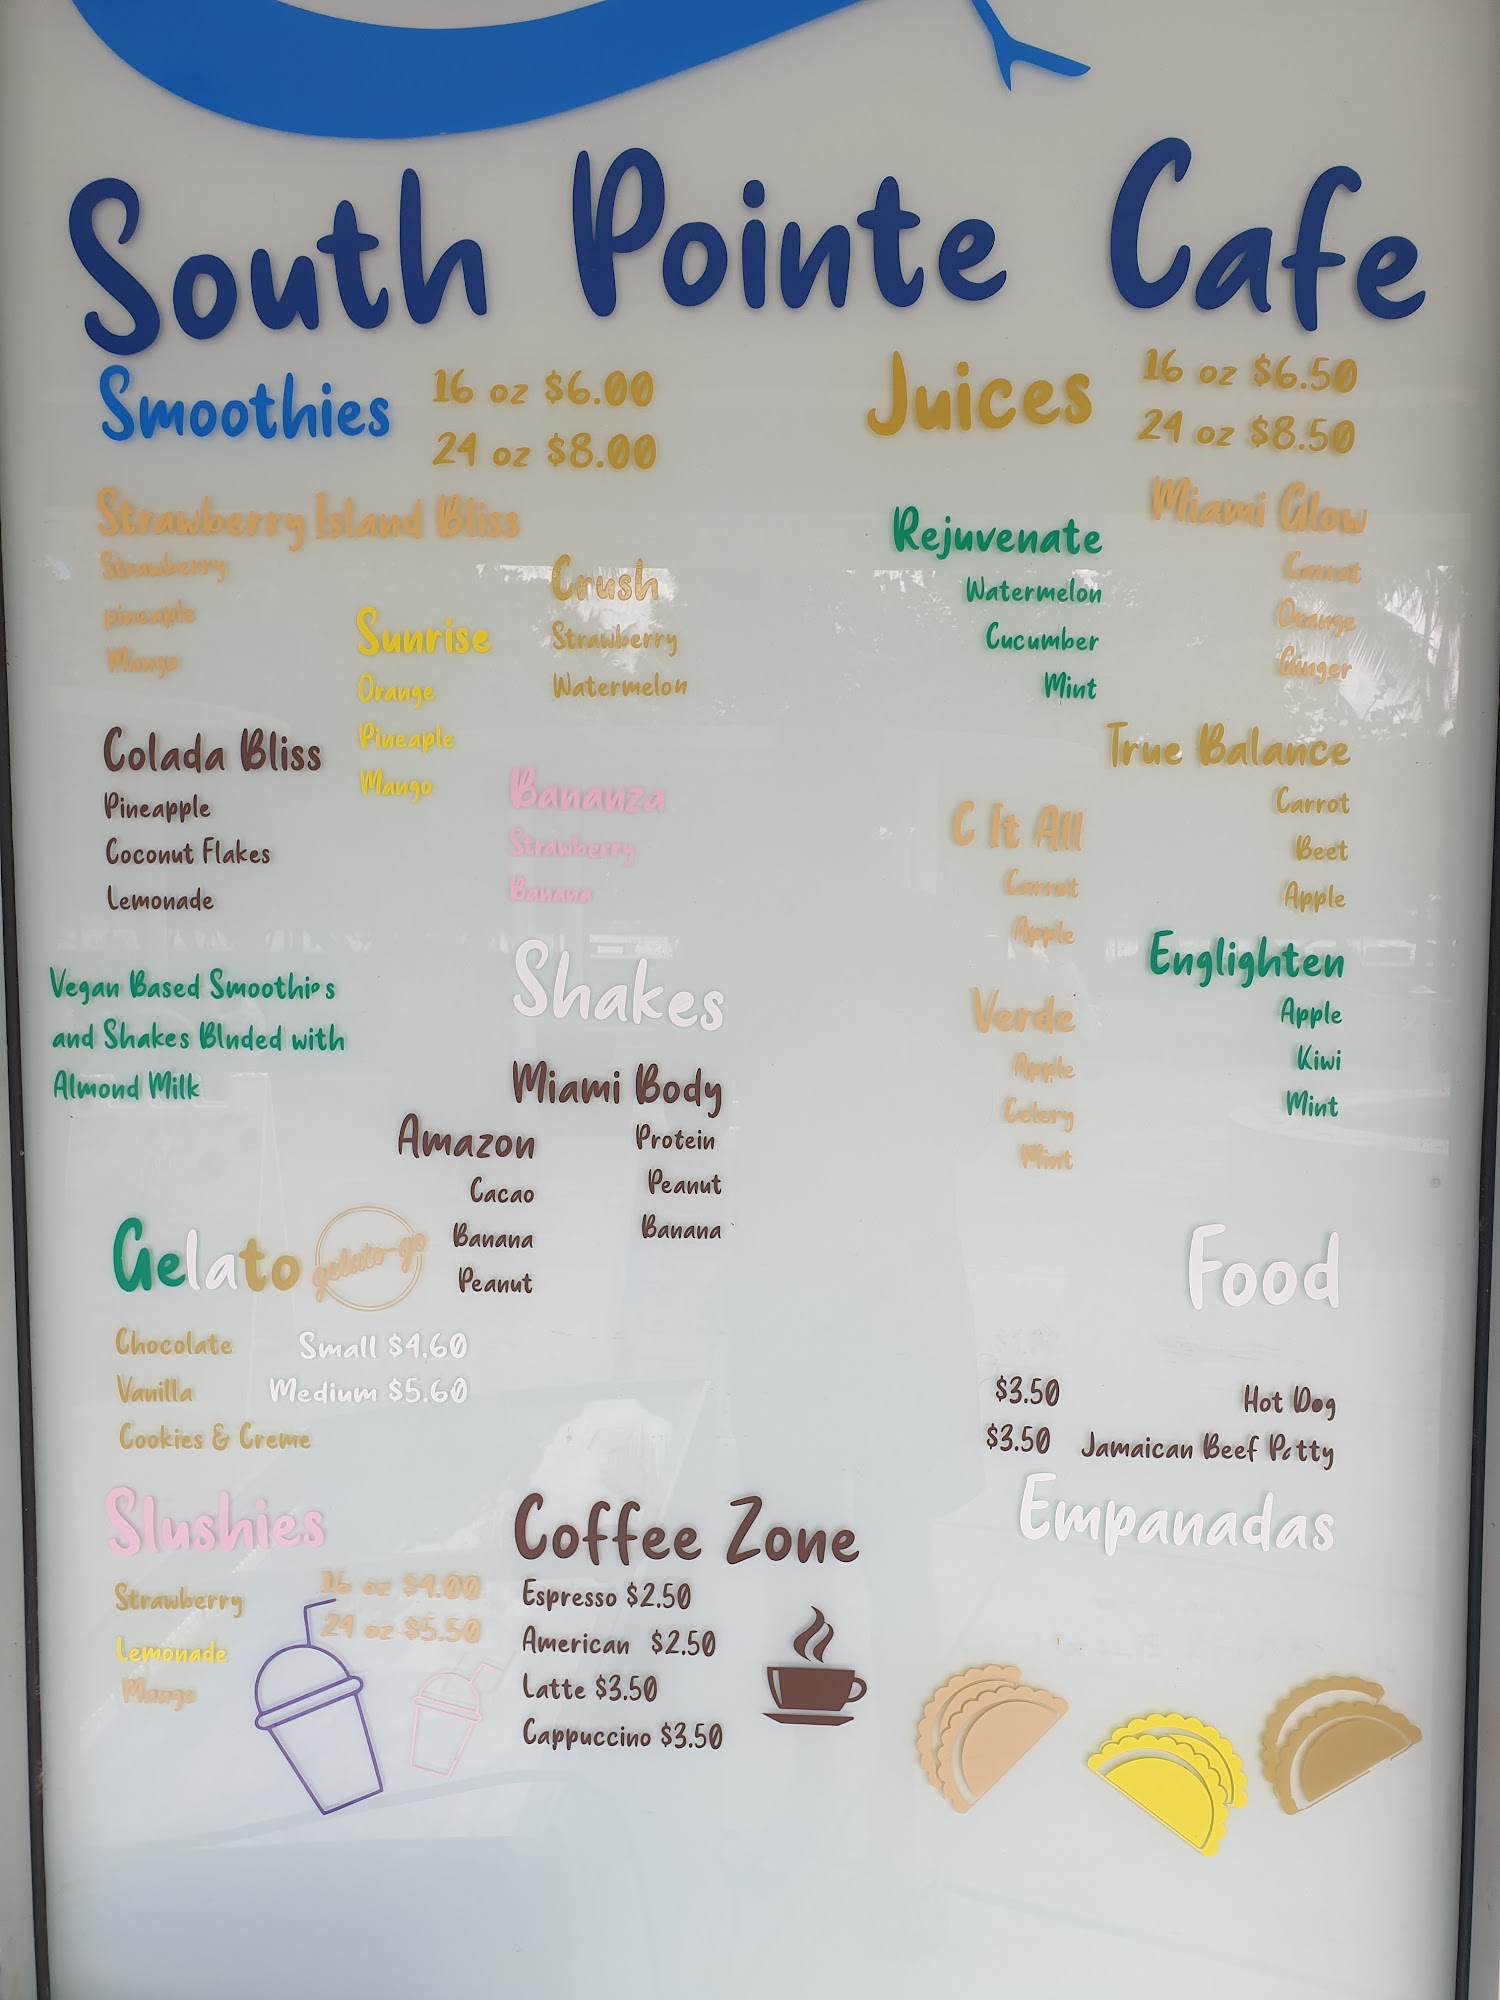 South Pointe Cafe
Smoothies
16 oz $6.00
24 oz $8.00
Strawberry Island Bliss
Strawberry
pineaple
Mango
Sunrise
Orange
Pineaple
Mango
Crush
Strawberry
Watermelon
Colada Bliss
Pineapple
Coconut Flakes
Lemonade
Bananza
Strawberry
Banana
Vegan Based Smoothies
and Shakes Blnded with
Almond Milk
Shakes
Miami Body
Protein
Peanut
Banana
Amazon
Cacao
Banana
Peanut
Gelato
gelato-go
Chocolate
Vanilla
Cookies & Creme
Small $4.60
Medium $5.60
Slushies
16 oz $4.00
24 oz $5.50
Strawberry
Lemonade
Mango
Coffee Zone
Espresso $2.50
American $2.50
Latte $3.50
Cappuccino $3.50
Juices
16 oz $6.50
24 oz $8.50
Rejuvenate
Watermelon
Cucumber
Mint
Miami Glow
Carrot
Orange
Ginger
True Balance
Carrot
Beet
Apple
C It All
Carrot
Apple
Englighten
Apple
Kiwi
Mint
Verde
Apple
Celery
Mint
Food
$3.50 Hot Dog
$3.50 Jamaican Beef Patty
Empanadas